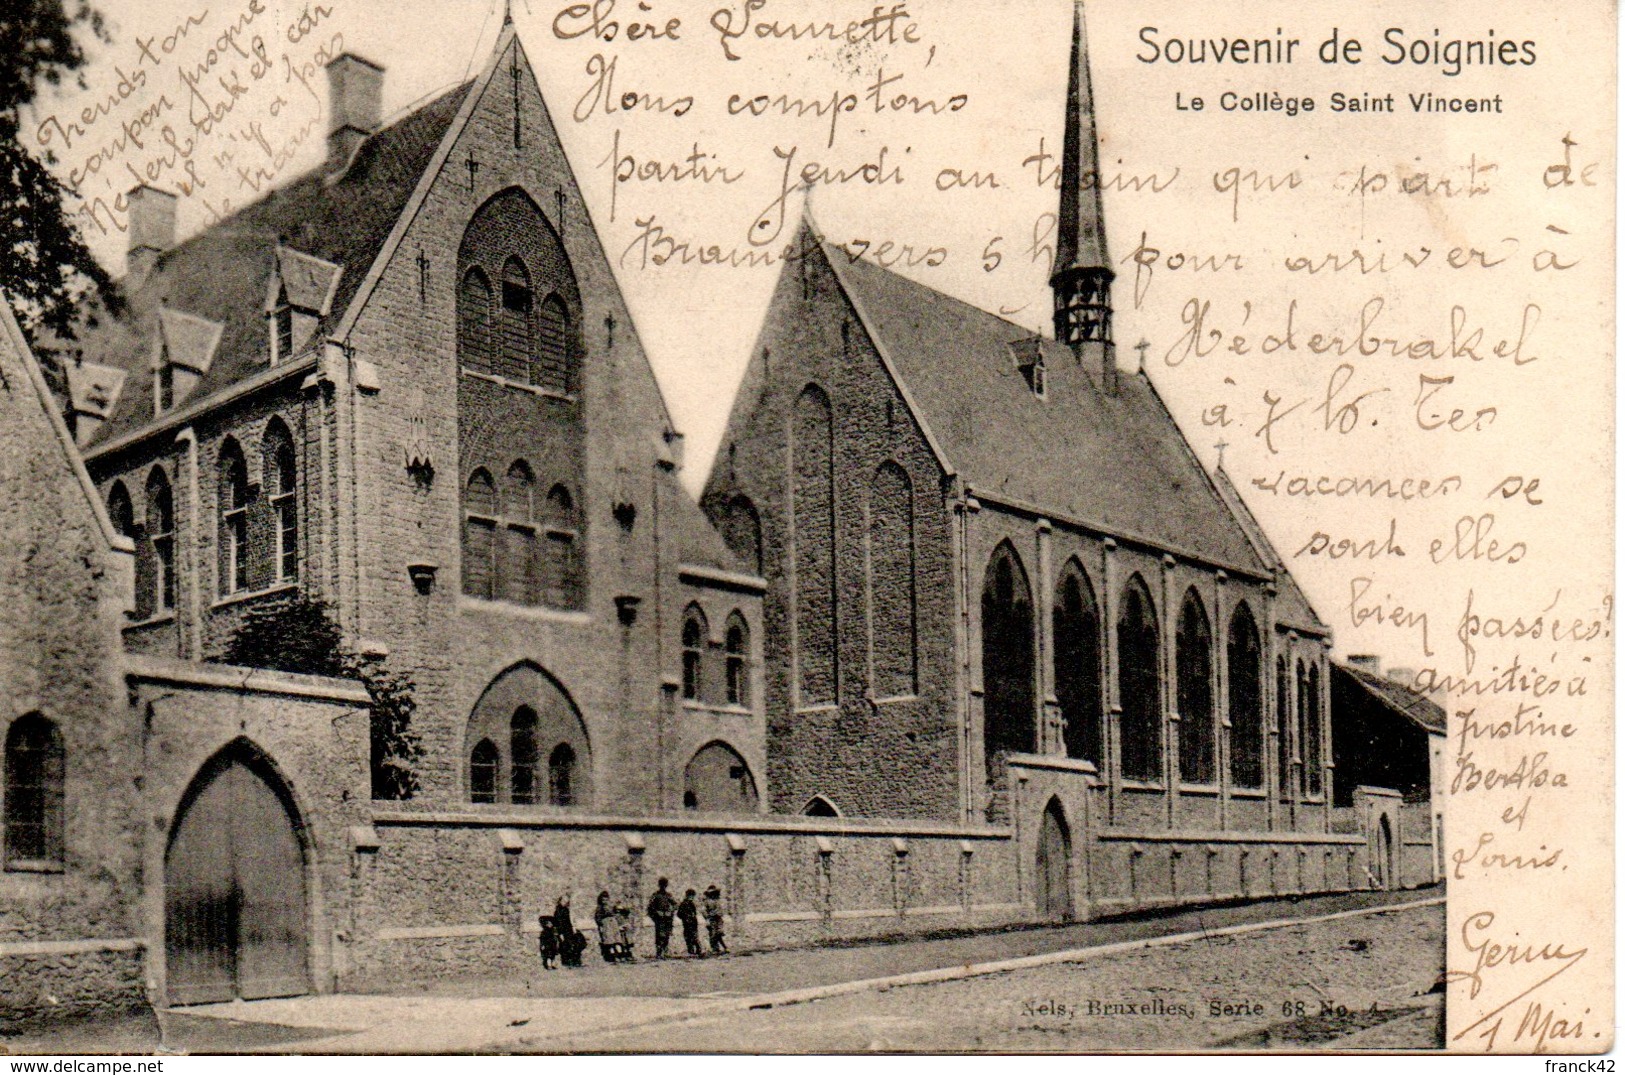 Souvenir de Soignies
Le Collège Saint Vincent
Chère Laurette,
Nous comptons
partir Jeudi au train qui part de
Braine vers 5 h pour arriver à
Néderbrakel
à 7 h. Tes
vacances se
sont elles
bien passées?
amitiés à
Justine
Bertha
et
Louis.
Germ
1 Mai.
Prends ton
coupon jusque
Néderbrakel car
il n'y a pas
de tram
Nels, Bruxelles, Serie 68 No. 4
delcampe.net
franck42